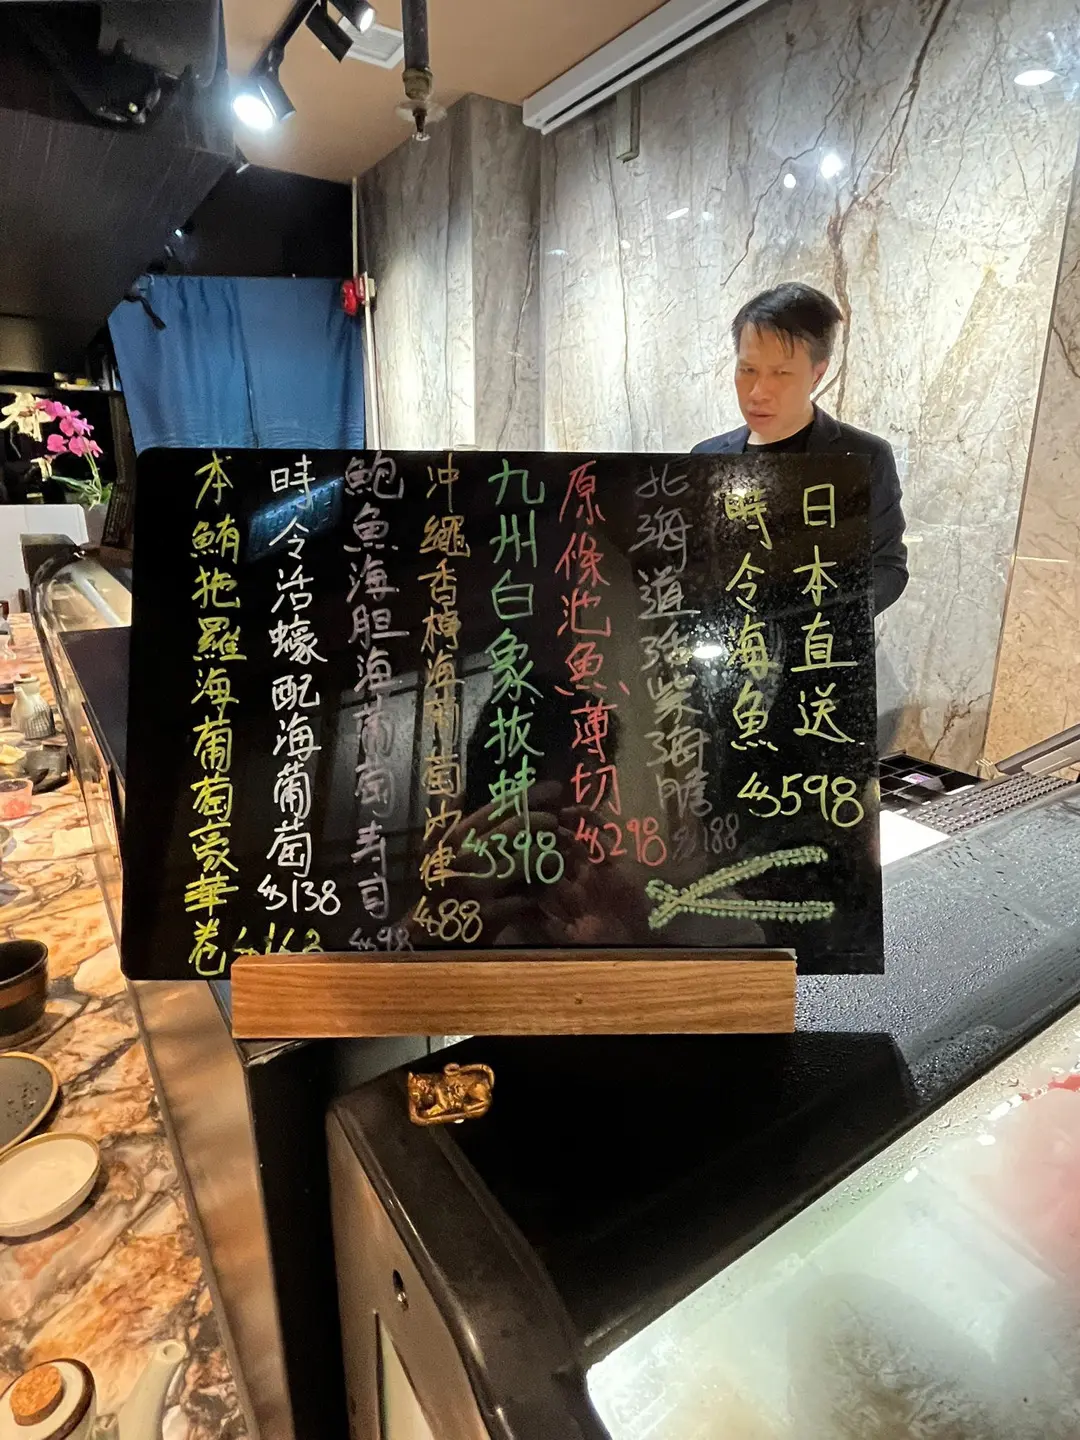 日本直送
時令海魚 $598
北海道活紫海膽 $188
原條池魚薄切 $298
九州白象拔蚌 $398
沖繩香檸海葡萄沙律 $88
鮑魚海胆海葡萄寿司 $98
時令活蠔配海葡萄 $138
本鮪拖羅海葡萄豪華卷